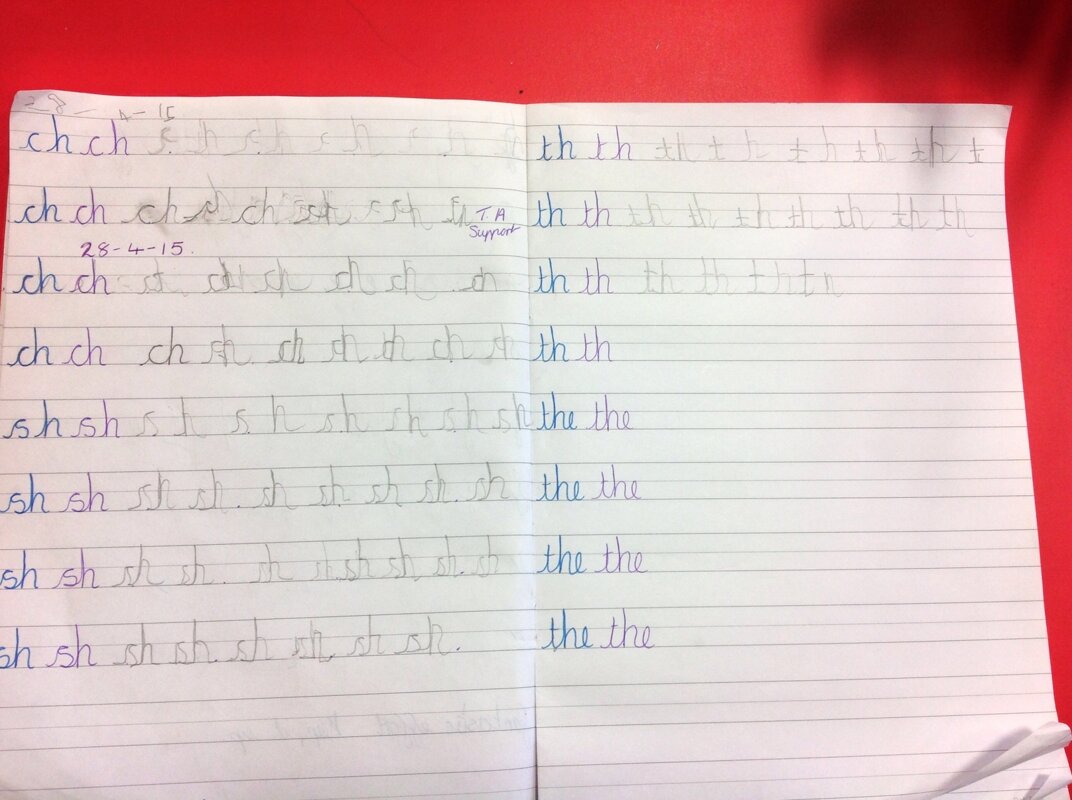 28-4-15
ch ch s h s h s h
ch ch ch ch sh sh T.A
Support
28-4-15.
ch ch ch ch ch ch ch ch
ch ch ch sh ch sh ch ch sh
sh sh s h s h sh sh sh sh
sh sh sh sh. sh sh. sh sh. sh
sh sh sh sh. sh sh sh sh sh. sh
sh sh sh sh. sh sh. sh sh.
th th th t h t h th th t
th th th th th th th th th
th th th th th t
th th
the the
the the
the the
the the